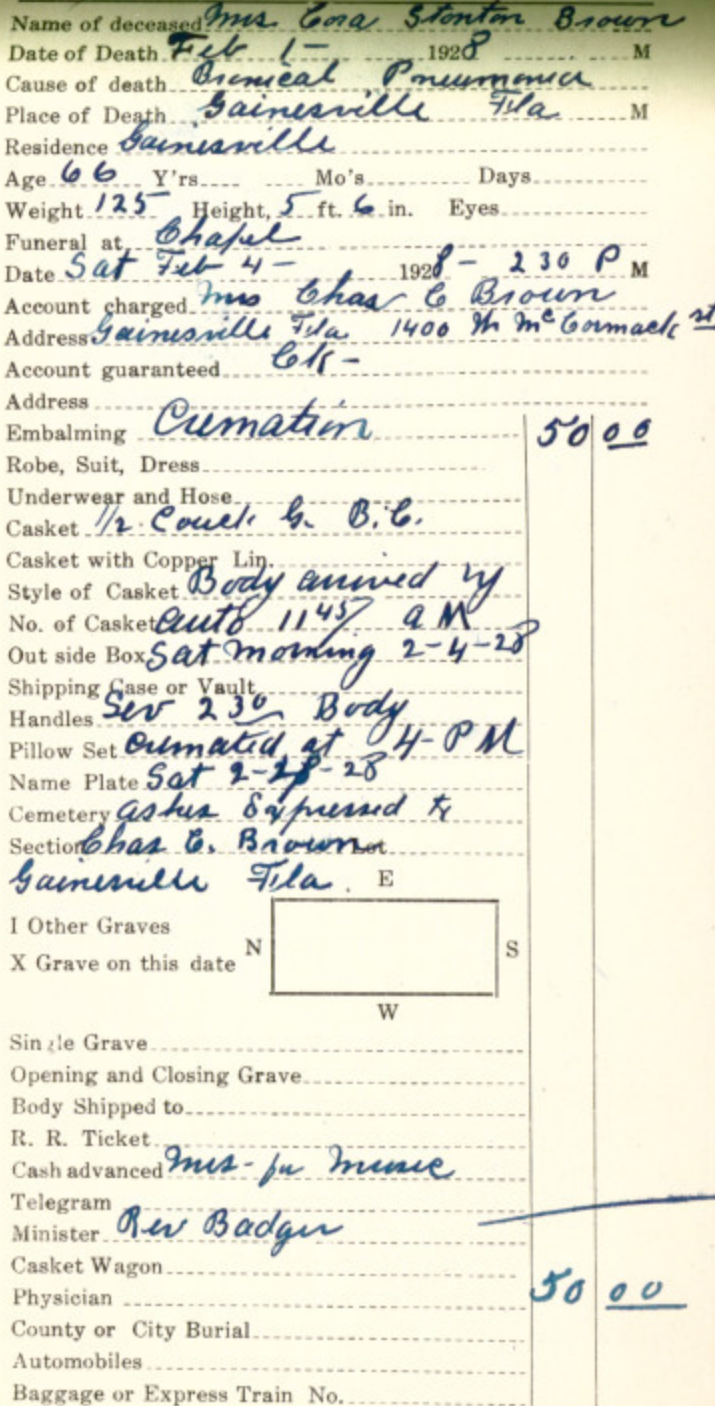 Name of deceased Mrs Cora Stonton Brown
Date of Death Feb 1- 1928 M
Cause of death Pneumonia
Place of Death Gainesville Fla M
Residence Gainesville
Age 66 Y'rs Mo's Days
Weight 125 Height, 5 ft. 6 in. Eyes
Funeral at Chapel
Date Sat Feb 4- 1928- 2 30 P M
Account charged Mrs Chas C Brown
Address Gainesville Fla 1400 McCormack st
Account guaranteed Ck-
Address
Embalming Cremation 50 00
Robe, Suit, Dress
Underwear and Hose
Casket 1/2 Couch G. B.C.
Casket with Copper Lin.
Style of Casket Body arrived by
No. of Casket auto 11 45 a M
Out side Box Sat morning 2-4-28
Shipping Case or Vault
Handles Serv 2 30 Body
Pillow Set cremated at 4- P M
Name Plate Sat 2-28
Cemetery ashes Expressed to
Section Chas C. Brown Lot
Gainesville Fla. E
I Other Graves
N S
X Grave on this date
W
Single Grave
Opening and Closing Grave
Body Shipped to
R. R. Ticket
Cash advanced music
Telegram
Minister Rev Badger
Casket Wagon
Physician 50 00
County or City Burial
Automobiles
Baggage or Express Train No.